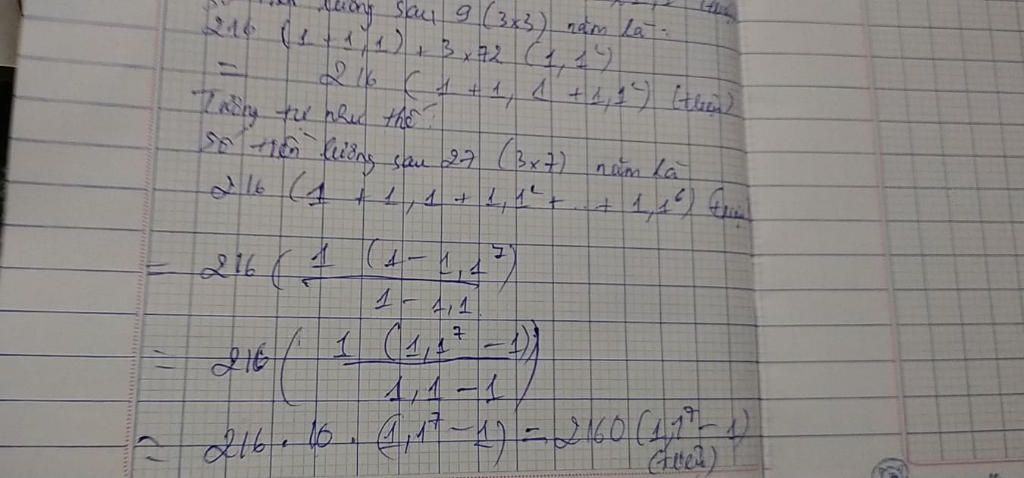 lương sau 9 (3x3) năm là:
216 (1 + 1,1) + 3x72 (1,1²)
= 216 (1 + 1,1 + 1,1²) (triệu)
Tương tự như thế:
Số tiền lương sau 27 (3x7) năm là
216 (1 + 1,1 + 1,1² + ... + 1,1⁶) (triệu)
= 216 ( 1 (1 - 1,1⁷) / 1 - 1,1
= 216 ( 1 (1,1⁷ - 1) / 1,1 - 1 )
= 216 . 10 . (1,1⁷ - 1) = 2160 (1,1⁷ - 1)
(triệu)